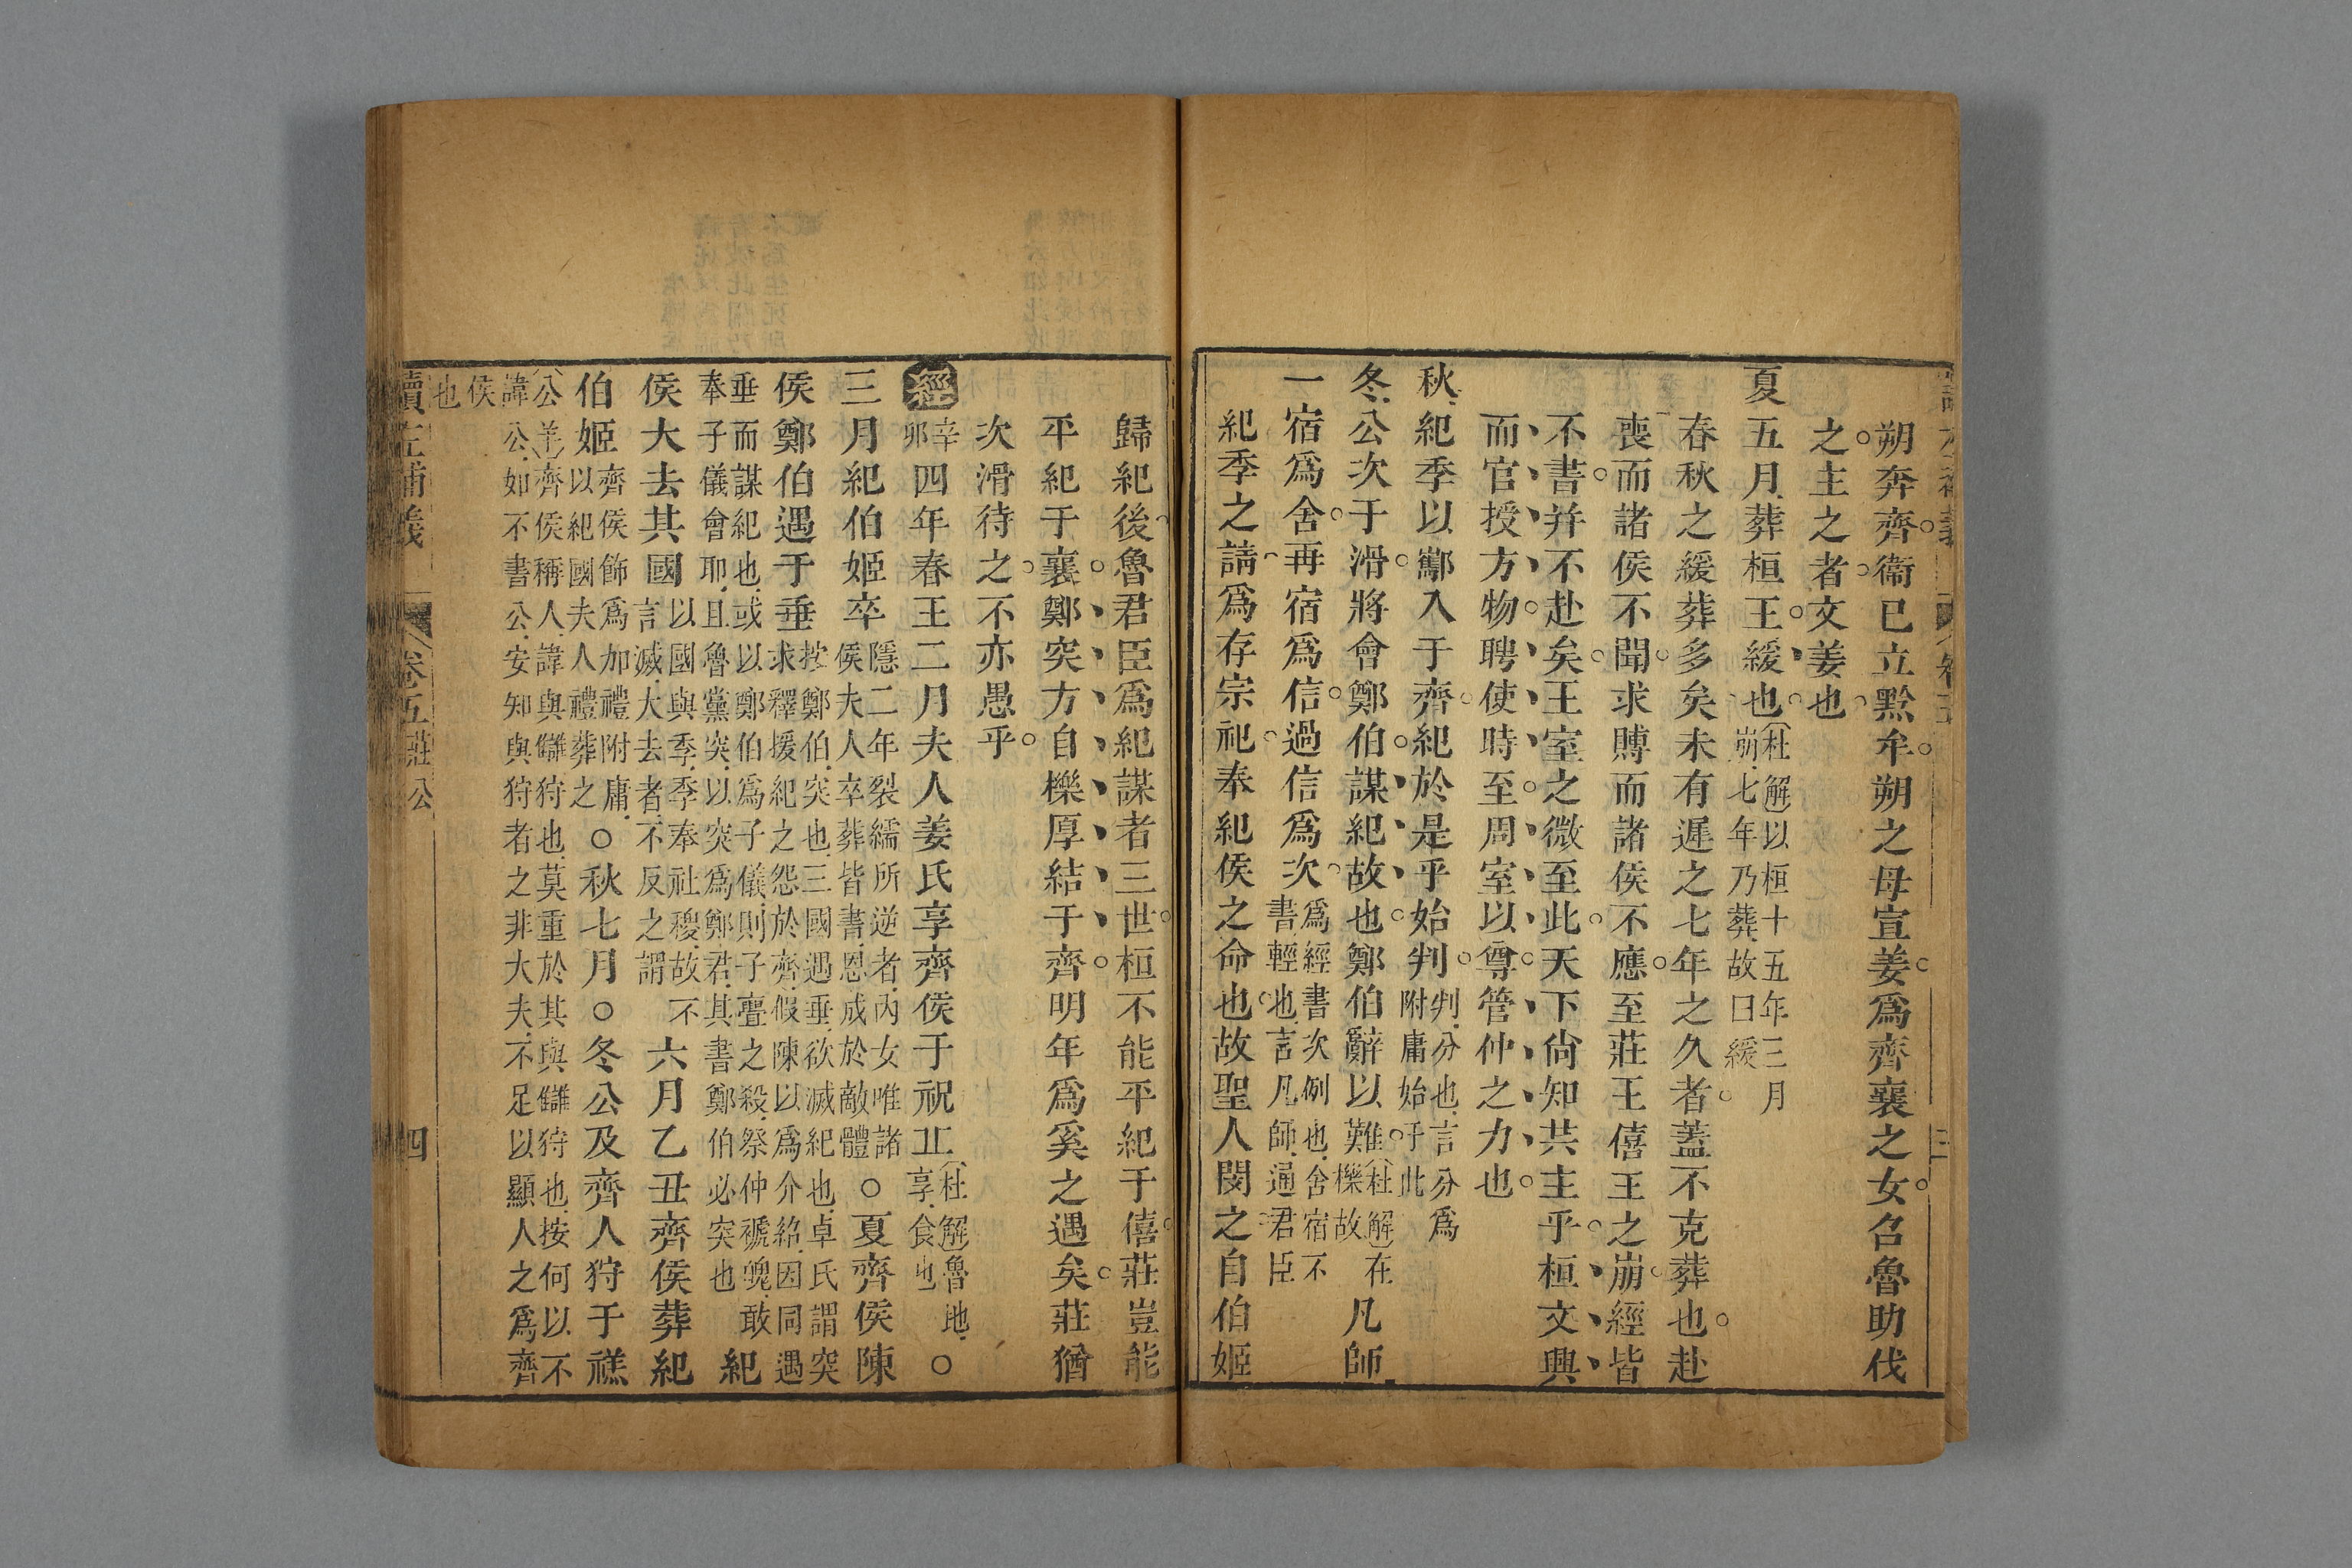 朔奔齊衞已立黔牟朔之母宣姜爲齊襄之女召魯助伐
之主之者文姜也
夏五月葬桓王緩也(杜解)以桓十五年三月崩七年乃葬故曰緩
春秋之緩葬多矣未有遲之七年之久者蓋不克葬也赴
喪而諸侯不聞求賻而諸侯不應至莊王僖王之崩經皆
不書并不赴矣王室之微至此天下尙知共主乎桓文興
而官授方物聘使時至周室以尊管仲之力也
秋紀季以酅入于齊紀於是乎始判判分也言分爲附庸始于此
冬公次于滑將會鄭伯謀紀故也鄭伯辭以難(杜解)在櫟故凡師
一宿爲舍再宿爲信過信爲次爲經書次例也舍宿不書輕也言凡師通君臣
紀季之請爲存宗祀奉紀侯之命也故聖人閔之自伯姬
歸紀後魯君臣爲紀謀者三世桓不能平紀于僖莊豈能
平紀于襄鄭突方自櫟厚結于齊明年爲奚之遇矣莊猶
次滑待之不亦愚乎
經辛卯四年春王二月夫人姜氏享齊侯于祝丘(杜解)魯地享食也○
三月紀伯姬卒隱二年裂繻所逆者內女唯諸侯夫人卒葬皆書恩成於敵體○夏齊侯陳
侯鄭伯遇于垂按鄭伯突也三國遇垂欲滅紀也卓氏謂突求釋援紀之怨於齊假陳以爲介紹因同遇
垂而謀紀也或以鄭伯爲子儀則子亹之殺祭仲褫魄敢奉子儀會耶且魯黨突以突爲鄭君其書鄭伯必突也紀
侯大去其國以國與季季奉社稷故不言滅大去者不反之謂六月乙丑齊侯葬紀
伯姬齊侯飾爲加禮附庸以紀國夫人禮葬之○秋七月○冬公及齊人狩于禚
(公羊)齊侯稱人諱與讎狩也莫重於其與讎狩也按何以不諱公如不書公安知與狩者之非大夫不足以顯人之爲齊
侯也
讀左補義 卷五莊公 四